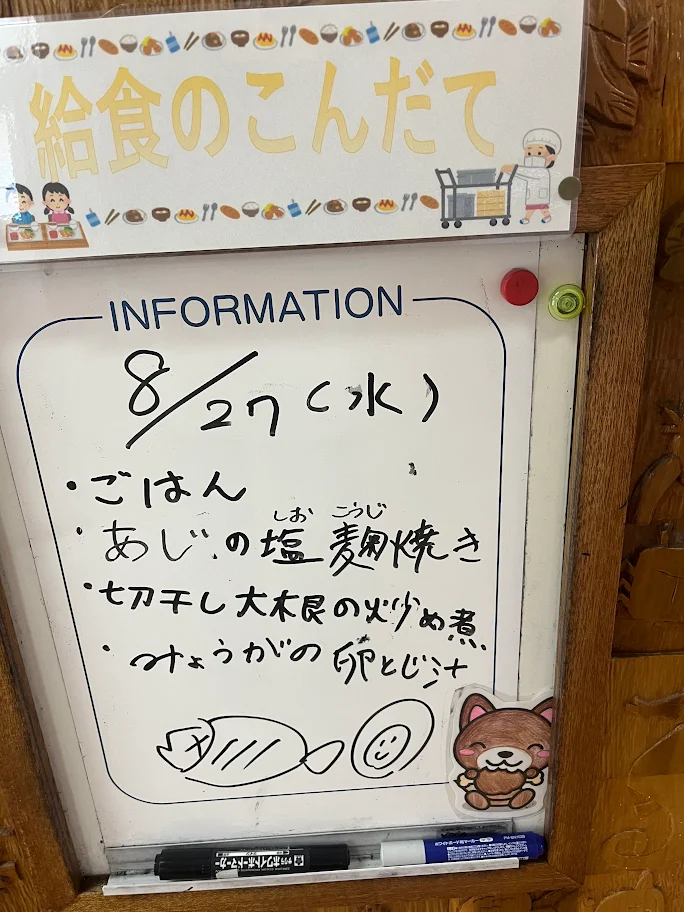 給食のこんだて
INFORMATION
8/27(水)
・ごはん
しお こうじ
・あじの塩麹焼き
・切干し大根の炒め煮
・みょうがの卵とじ汁
ホワイトボードマーカー